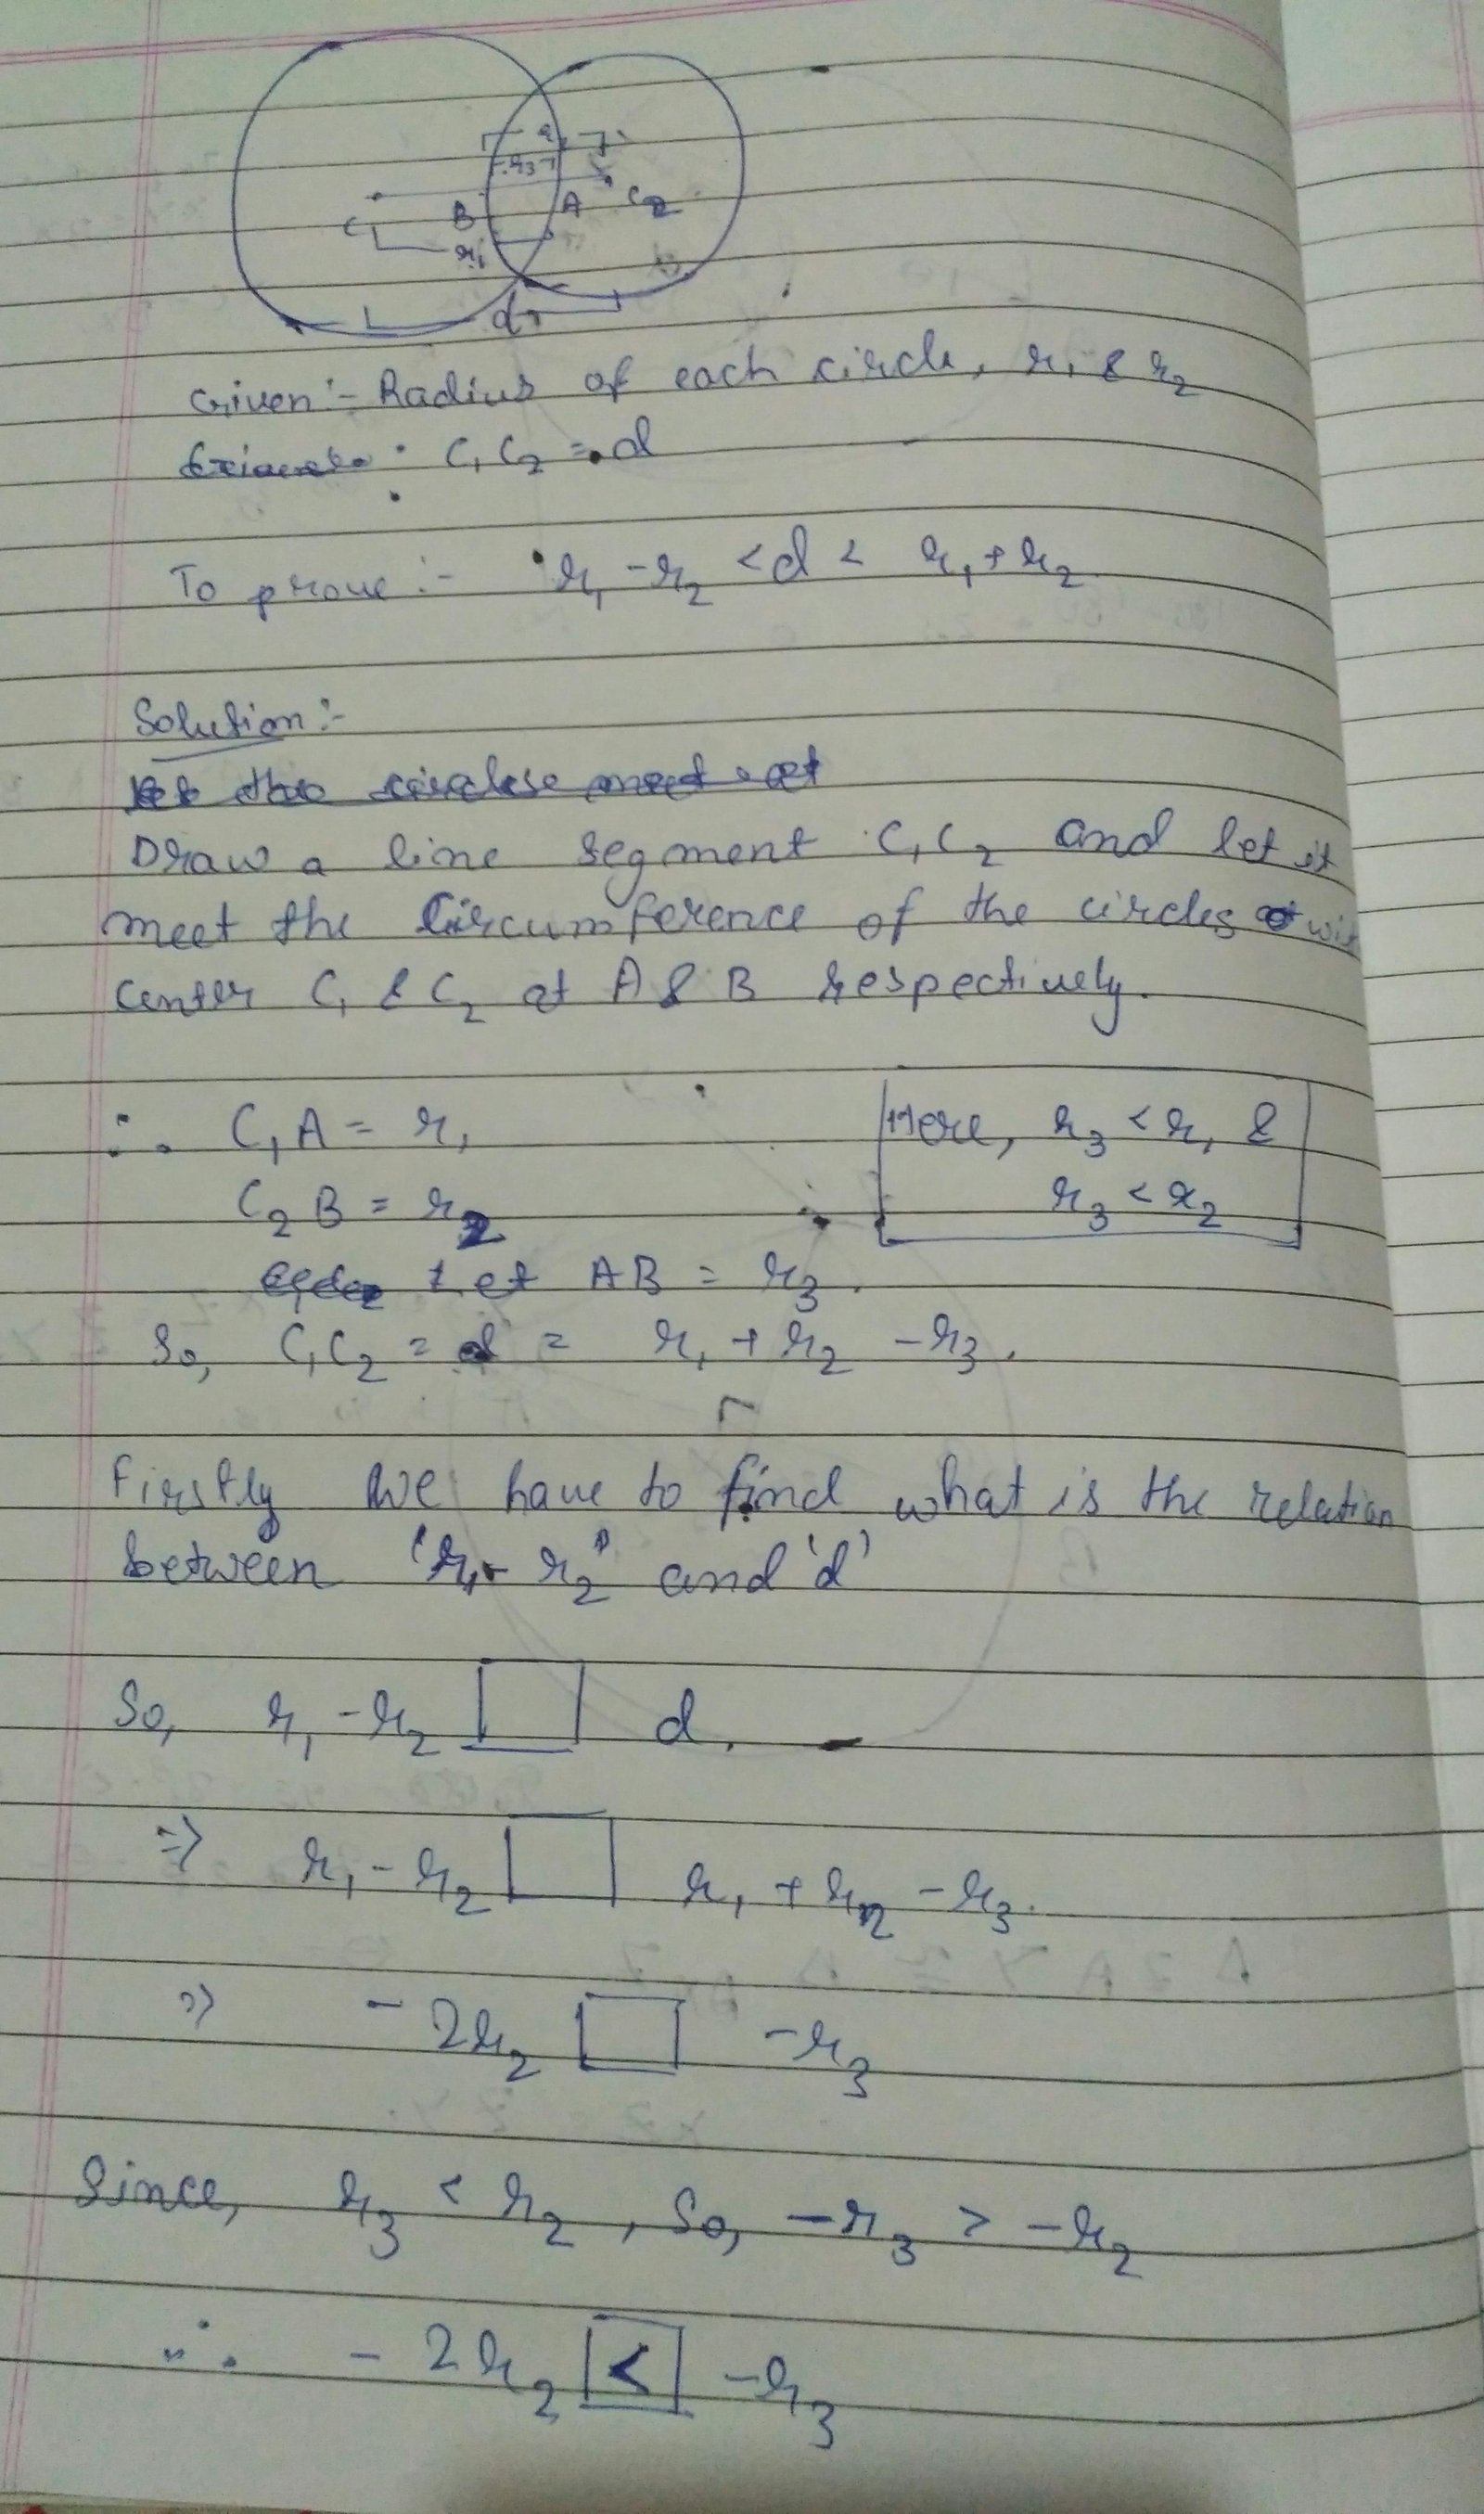 r3
B A C2
C
r1
d
Given:- Radius of each circle, r1 & r2
C1C2 = d
To prove:- r1 - r2 < d < r1 + r2
Solution:-
Draw a line segment C1C2 and let it
meet the Circumference of the circles
Center C1 & C2 at A & B respectively.
∴ C1A = r1
Here, r3 < r1 &
C2B = r2
r3 < r2
Let AB = r3.
So, C1C2 = d = r1 + r2 - r3.
Firstly we have to find what is the relation
between 'r1 - r2' and 'd'
So, r1 - r2 □ d.
⇒ r1 - r2 □ r1 + r2 - r3.
⇒ -2r2 □ -r3
Since, r3 < r2, So, -r3 > -r2
∴ -2r2 < -r3